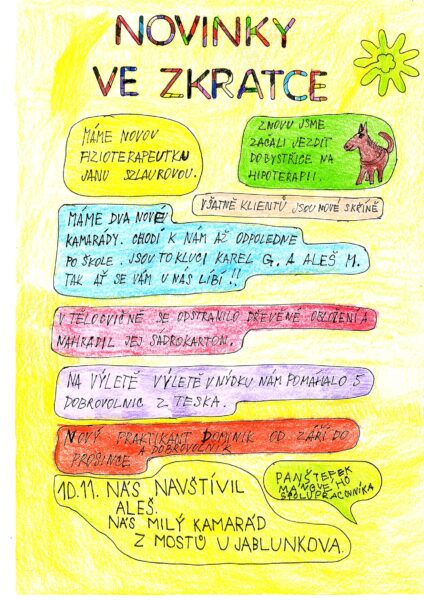 NOVINKY
VE ZKRATCE
MÁME NOVOU
FIZIOTERAPEUTKU
JANU SZLAUROVOU.
ZNOVU JSME
ZAČALI JEZDIT
DO BYSTŘICE NA
HIPOTERAPII.
V ŠATNĚ KLIENTŮ JSOU NOVÉ SKŘÍNĚ
MÁME DVA NOVÉ
KAMARÁDY. CHODÍ K NÁM AŽ ODPOLEDNE
PO ŠKOLE. JSOU TO KLUCI KAREL G. A ALEŠ M.
TAK AŤ SE VÁM U NÁS LÍBÍ!!
V TĚLOCVIČNĚ SE ODSTRANILO DŘEVĚNÉ OBLOŽENÍ A
NAHRADIL JEJ SÁDROKARTON.
NA VÝLETĚ VÝLETĚ V NÝDKU NÁM POMÁHALO 5
DOBROVOLNIC Z TESKA.
NOVÝ PRAKTIKANT DOMINIK OD ZÁŘÍ DO
PROSINCE A DOBROVOLNÍK
10.11. NÁS NAVŠTÍVIL
ALEŠ.
NÁŠ MILÝ KAMARÁD
Z MOSTŮ U JABLUNKOVA.
PAN ŠTEFEK
MÁ NOVÉHO
SPOLUPRACOVNÍKA